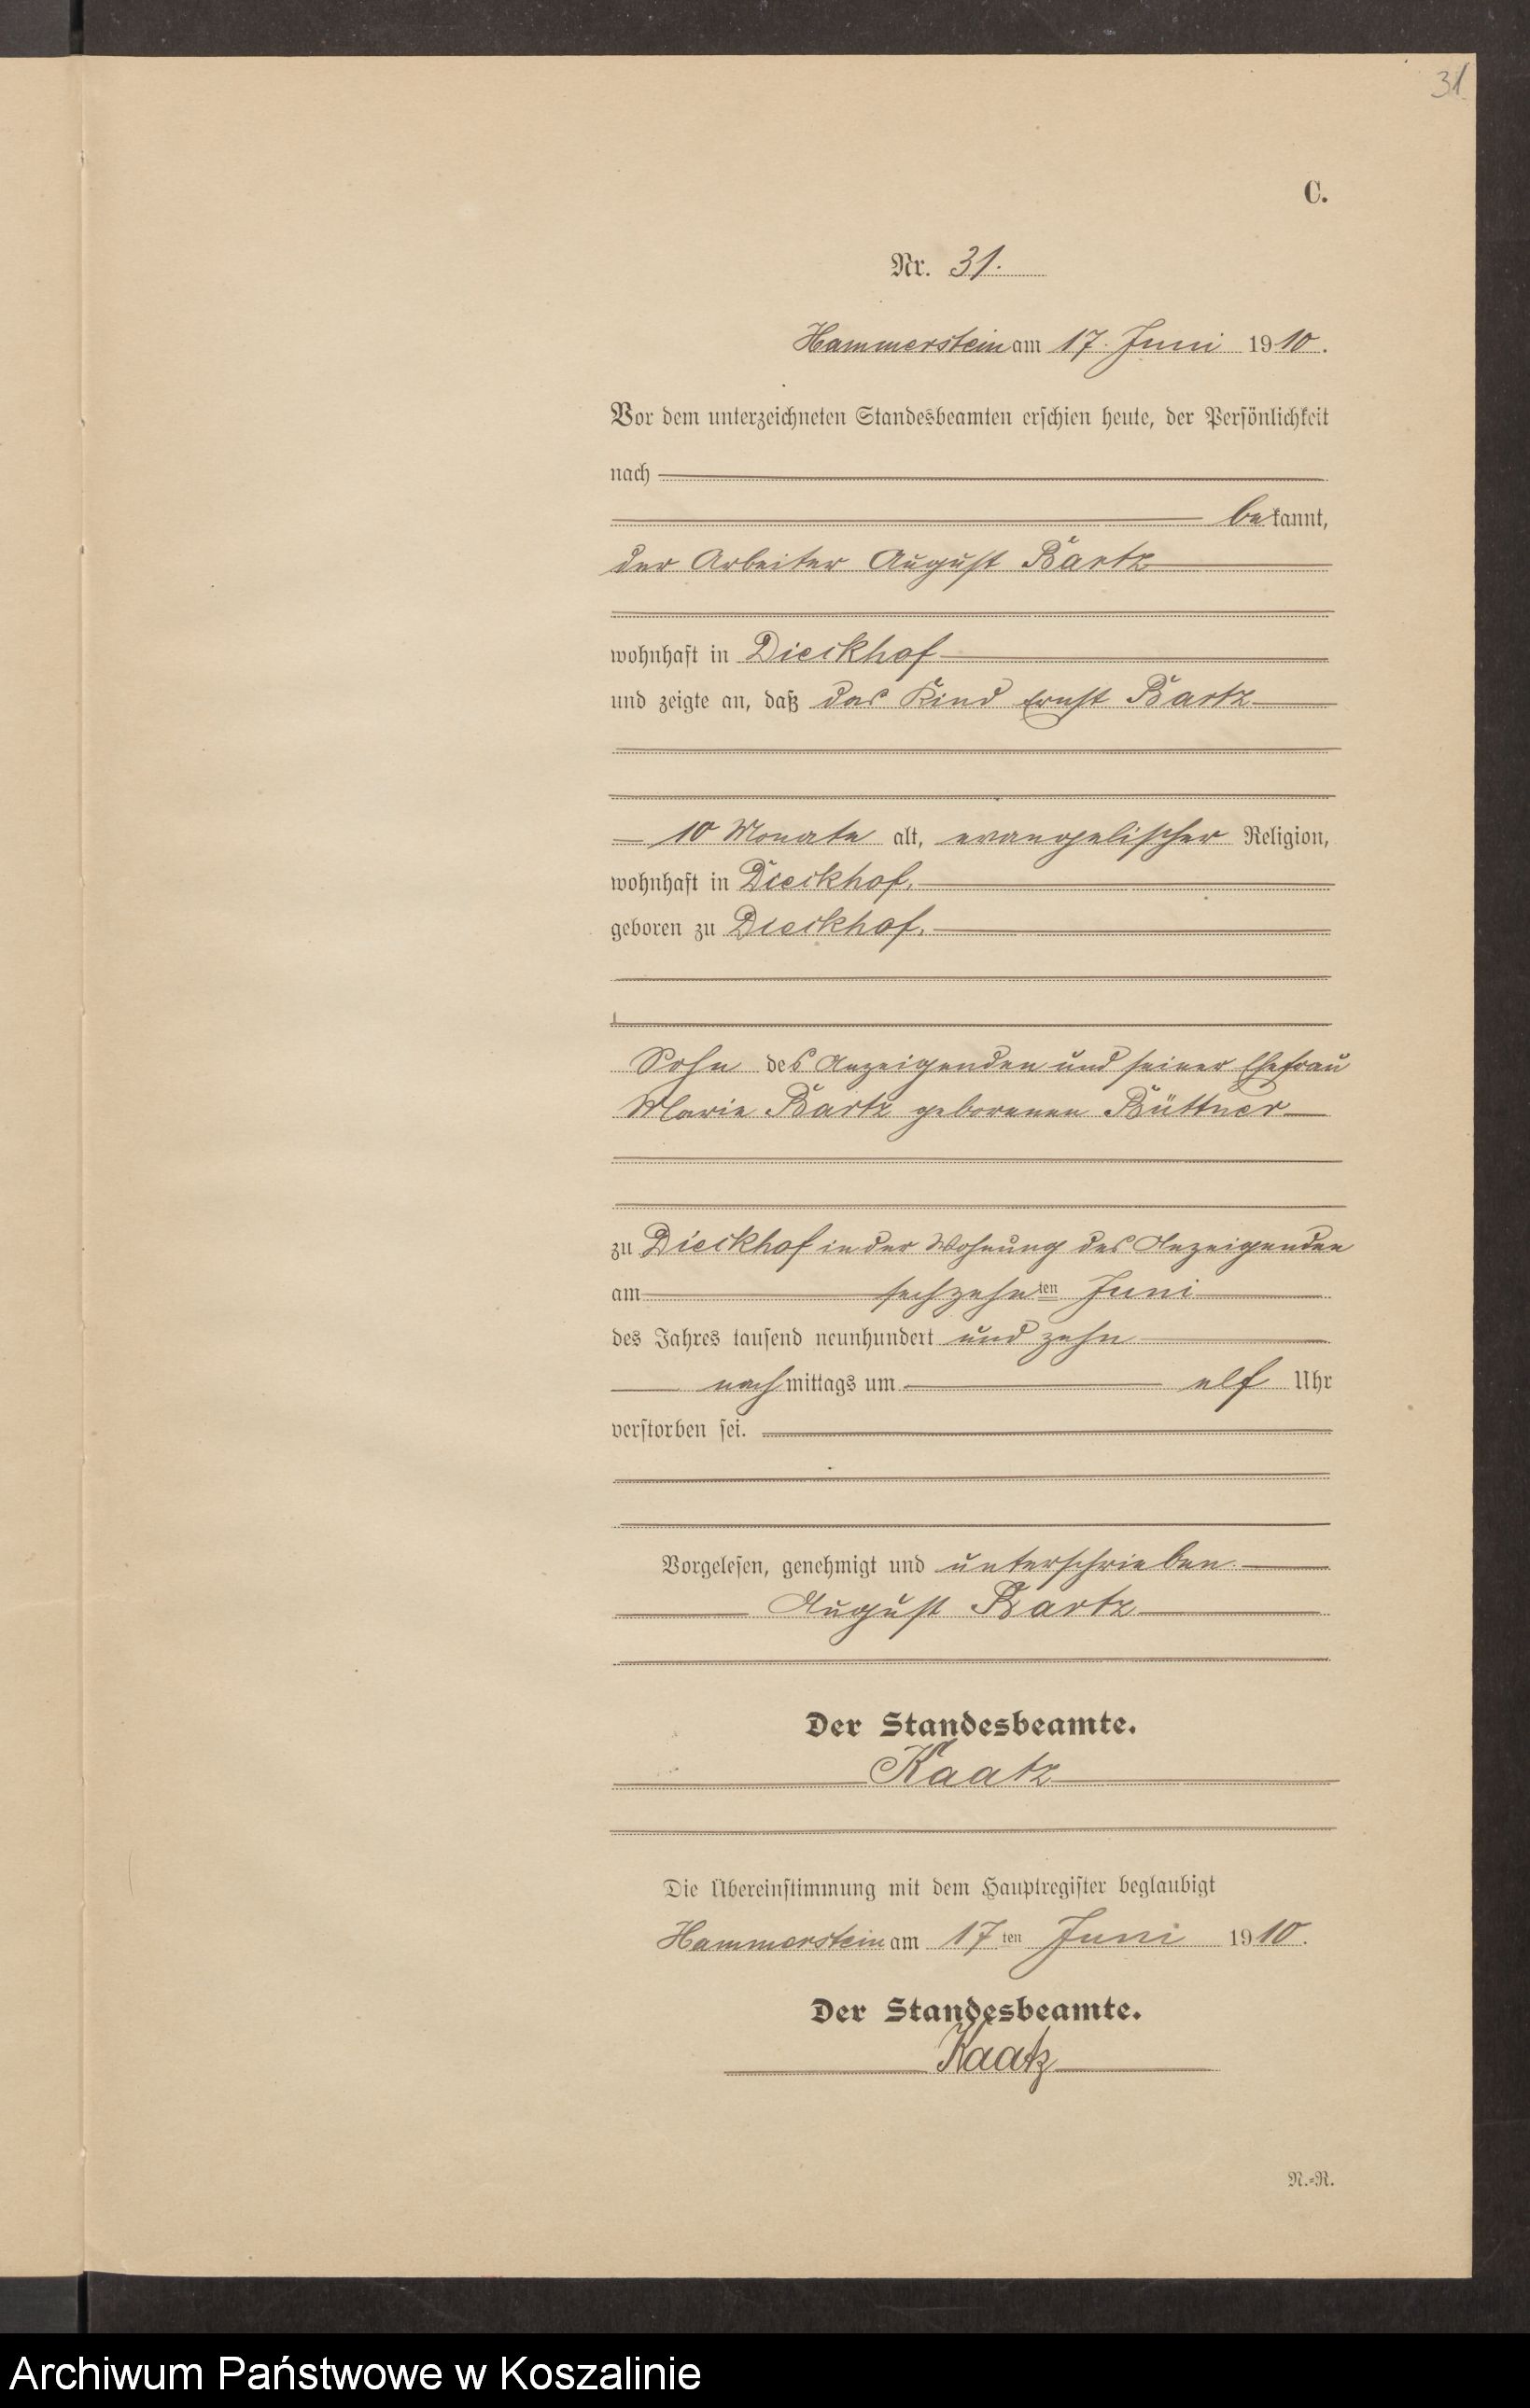 31
C.
Nr. 31.
Hammerstein am 17. Juni 1910.
Vor dem unterzeichneten Standesbeamten erschien heute, der Persönlichkeit
nach
bekannt,
der Arbeiter August Bartz
wohnhaft in Dieckhof
und zeigte an, daß das Kind Ernst Bartz
10 Monate alt, evangelischer Religion,
wohnhaft in Dieckhof.
geboren zu Dieckhof.
Sohn des Anzeigenden und seiner Ehefrau
Marie Bartz geborenen Büttner
zu Dieckhof in der Wohnung des Anzeigenden
am sechzehnten Juni
des Jahres tausend neunhundert und zehn
nachmittags um elf Uhr
verstorben sei.
Vorgelesen, genehmigt und unterschrieben.
August Bartz
Der Standesbeamte.
Kaatz
Die Übereinstimmung mit dem Hauptregister beglaubigt
Hammerstein am 17ten Juni 1910.
Der Standesbeamte.
Kaatz
N.=R.
Archiwum Państwowe w Koszalinie